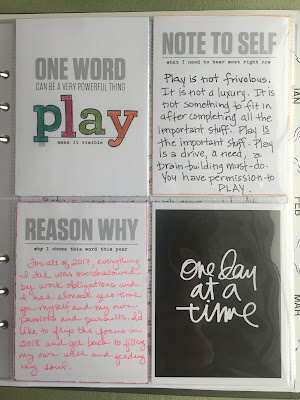 ONE WORD
CAN BE A VERY POWERFUL THING
play
make it visible
NOTE TO SELF
what I need to hear most right now
Play is not frivolous.
It is not a luxury. It is
not something to fit in
after completing all the
important stuff. Play IS
the important stuff. Play
is a drive, a need, a
brain building must-do.
You have permission to
PLAY.
REASON WHY
why I chose this word this year
For all of 2017, everything
I did was overshadowed
by work obligations and
I had almost zero time
for myself and my own
passions and pursuits. I'd
like to flip the focus in
2018 and get back to filling
my own well and feeding
my soul.
one day
at a
time
FEB
MAR